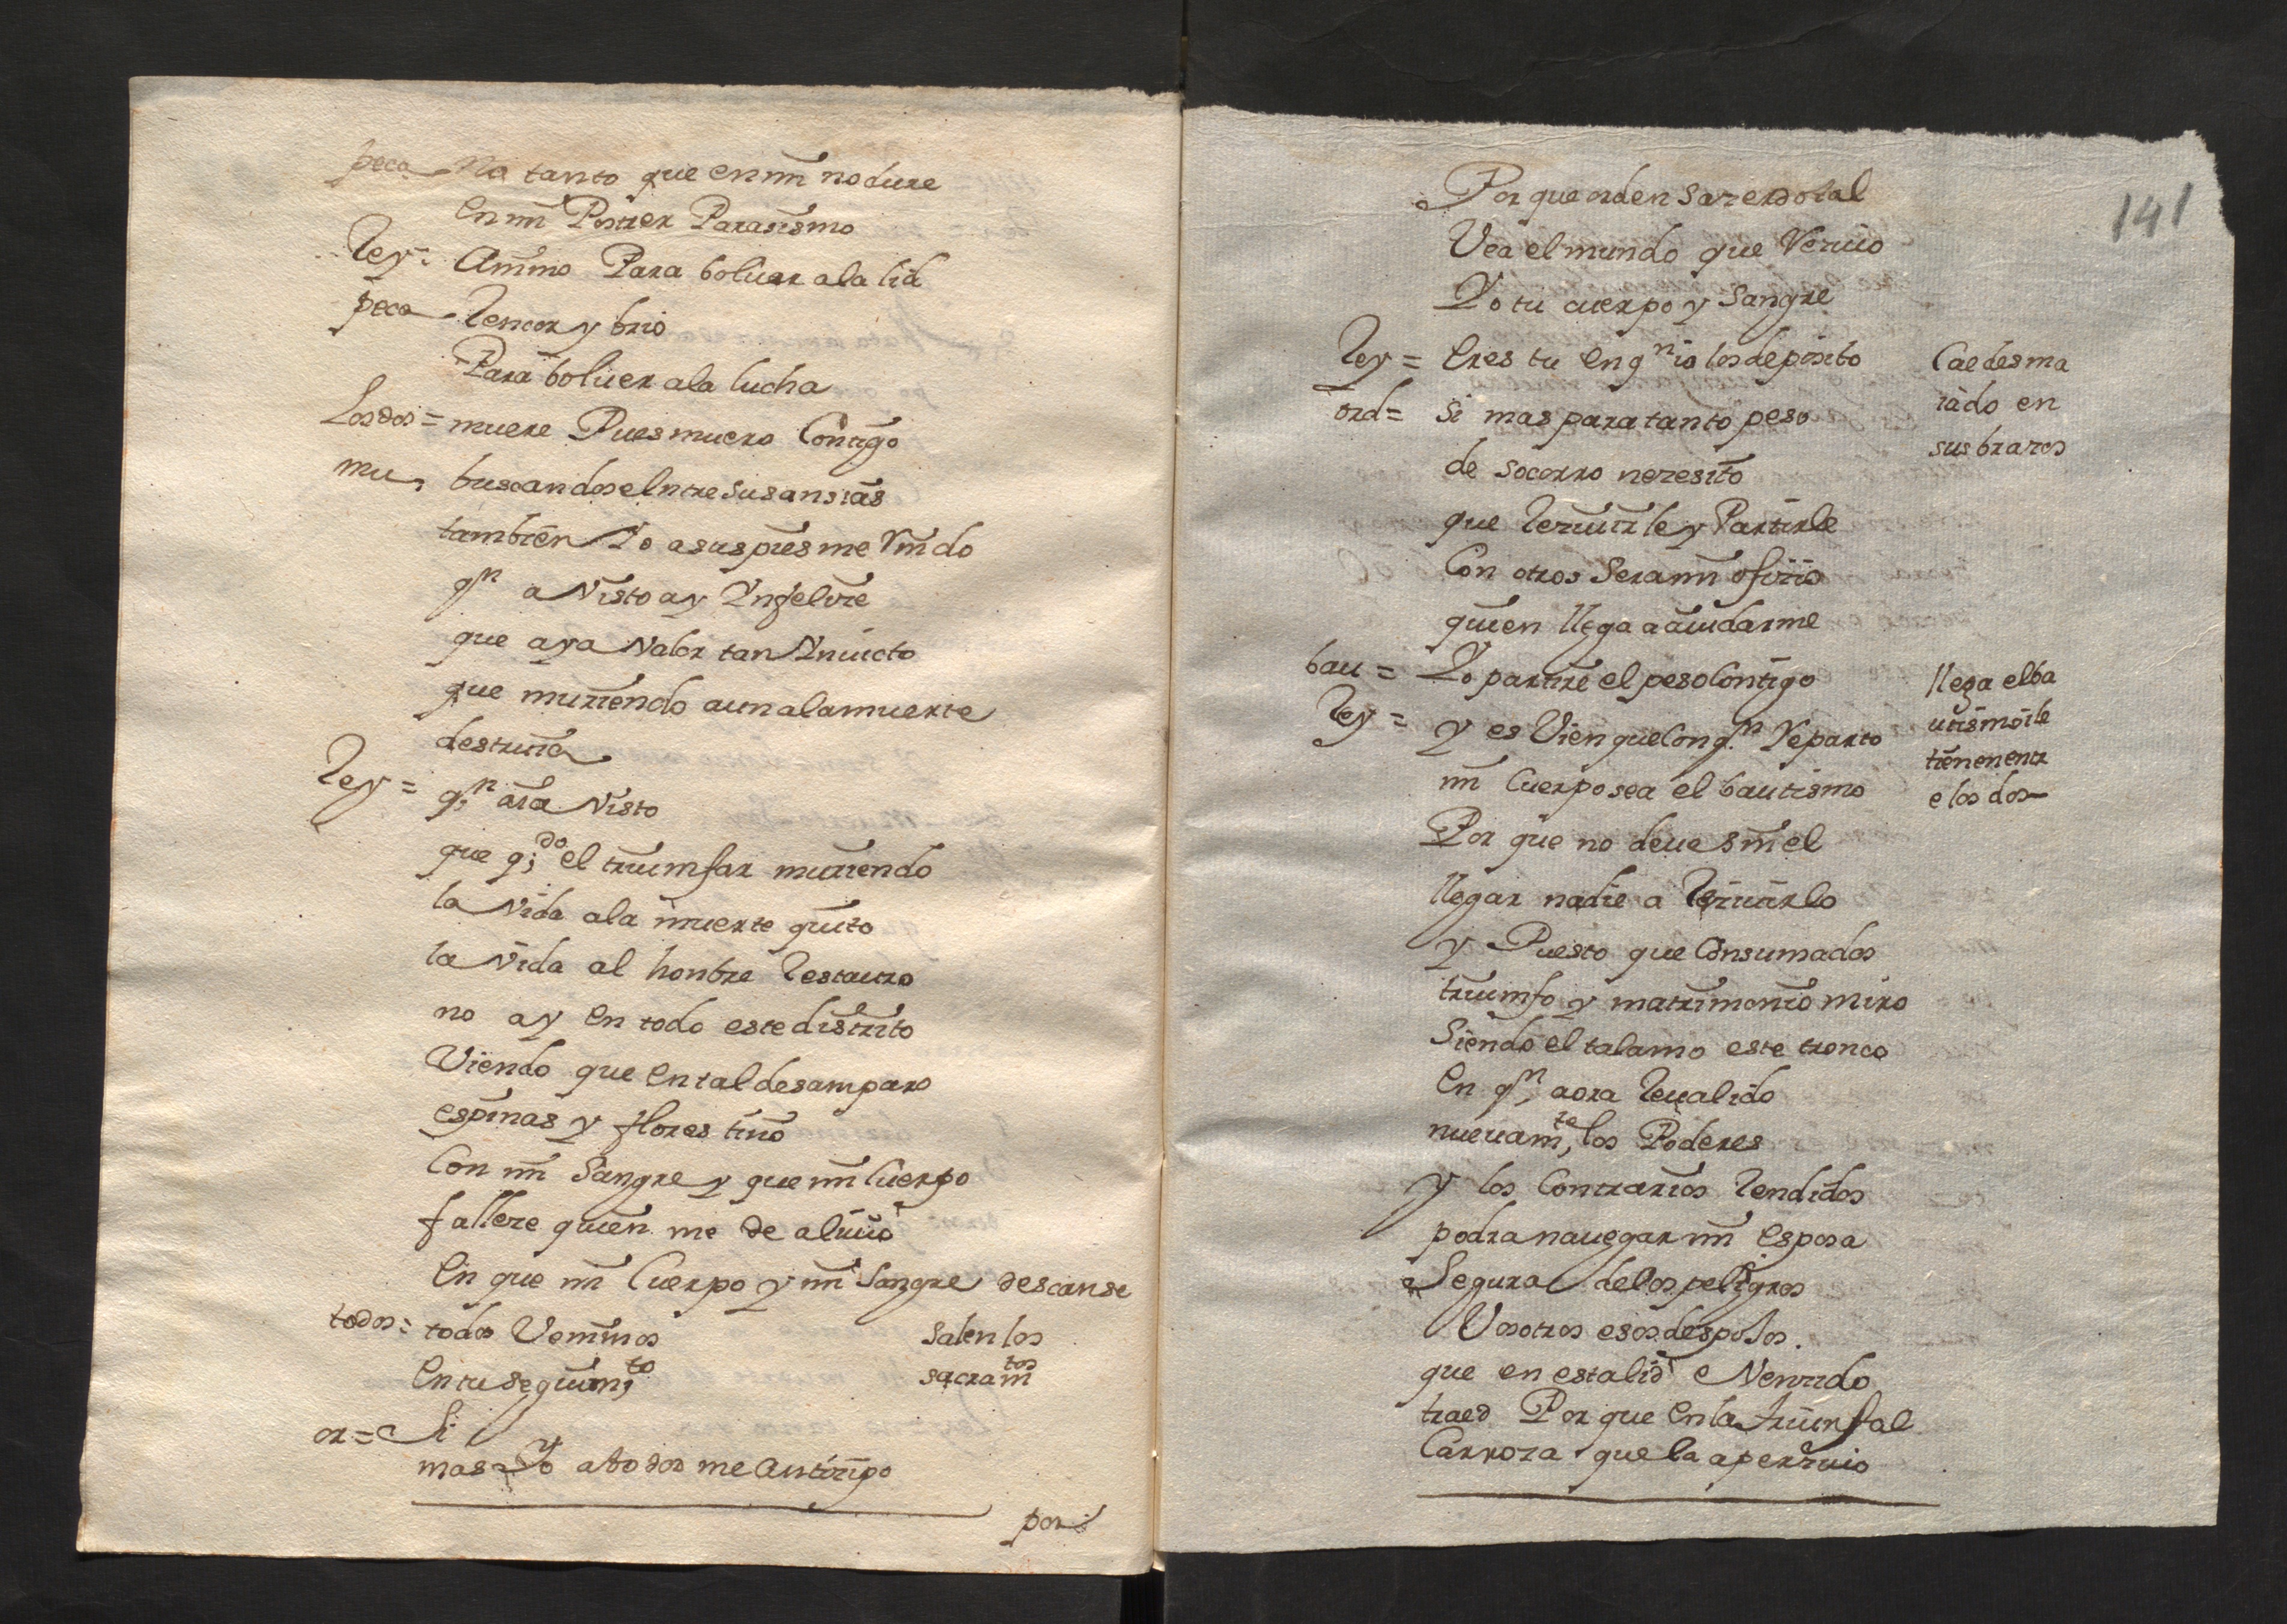 peca no tanto que en mi no dure
en mi Postrer Parasismo
Rey = Animo Para boluer a la lid
peca Rencor y brio
Para boluer a la lucha
Los dos = muere Pues muero Contigo
mu, buscandose entre sus ansias
tambien Yo a sus pies me Rindo
qn a Visto ay Ynfelice
que aya Valor tan Ynuicto
que muriendo aun a la muerte
destruia
Rey = qn aia Visto
que qdo el triumfar muriendo
la Vida a la muerte quito
la Vida al honbre Restauro
no ay en todo este distrito
Viendo que en tal desamparo
espinas y flores tiño
Con mi Sangre y que mi Cuerpo
falleze quien me de aliuio
En que mi Cuerpo y mi Sangre descanse
todos = todos Venimos
salen los
en tu seguimto
sacramtos
or = Si
mas Yo a todos me anticipo
por
141
Por que orden Sazerdotal
Vea el mundo que Reciuio
Yo tu cuerpo y Sangre
Rey = Eres tu en qn io los deposito
Cae desma
iado en
sus brazos
ord = Si mas para tanto peso
de socorro nezesito
que Reziuirle y Partirle
Con otros Sera mi ofizio
quien llega a aiudarme
bau = Yo partire el peso Contigo
llega el ba
utismo i le
tienen entr
e los dos
Rey = Y es Vien que Con qn Reparto
mi Cuerpo sea el bautismo
Por que no deue sin el
llegar nadie a Reziuirlo
y Puesto que Consumados
triumfo y matrimonio miro
Siendo el talamo este tronco
En qn, aora Reualido
nueuamte, los Poderes
y los Contrarios Rendidos
podra nauegar mi Esposa
Segura de los peligros
Vosotros esos despojos.
que en esta lid e Venzido
traed Por que en la triunfal
Carroza que la aperziuio